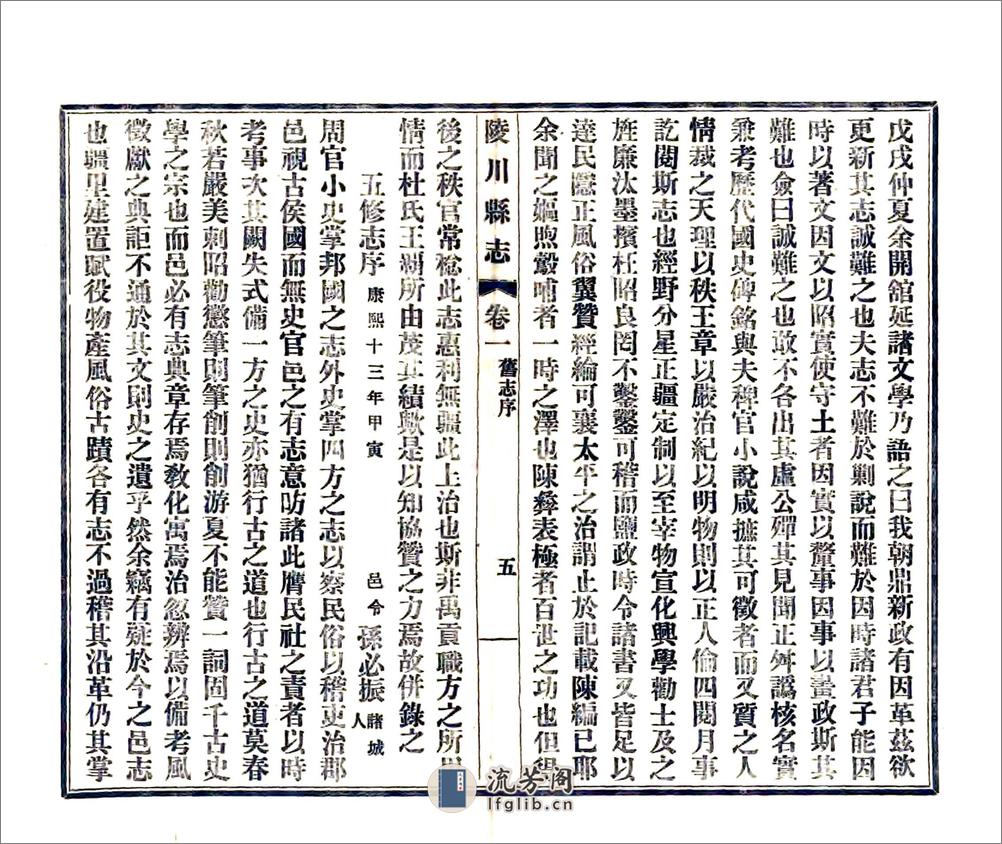 戊戌仲夏余開舘延諸文學乃語之曰我朝鼎新政有因革茲欲
更新其志誠難之也夫志不難於剿說而難於因時諸君子能因
時以著文因文以昭實使守土者因實以釐事因事以畫政斯其
難也僉曰誠難之也敢不各出其虛公殫其見聞正舛譌核名實
兼考歷代國史碑銘與夫稗官小說咸摭其可徵者而又質之人
情裁之天理以秩王章以嚴治紀以明物則以正人倫四閱月事
訖閱斯志也經野分星正疆定制以至宰物宣化興學勸士及之
旌廉汰墨擯枉昭良罔不鑿鑿可稽而鹽政時令諸書又皆足以
達民隱正風俗翼贊經綸可襄太平之治謂止於記載陳編已耶
余聞之嫗煦鷇哺者一時之澤也陳彝表極者百世之功也但得
陵川縣志 卷一 舊志序 五
後之秩官常稔此志惠利無疆此上治也斯非禹貢職方之所
情而杜氏王溯所由茂其績歟是以知協贊之力焉故併錄之
五修志序 康熙十三年甲寅 邑令孫必振 諸城人
周官小史掌邦國之志外史掌四方之志以察民俗以稽吏治郡
邑視古侯國而無史官邑之有志意昉諸此膺民社之責者以時
考事次其闕失式備一方之史亦猶行古之道也行古之道莫春
秋若嚴美刺昭勸懲筆則筆削則削游夏不能贊一詞固千古史
學之宗也而邑必有志典章存焉敎化寓焉治忽辨焉以備考風
徵獻之典詎不通於其文則史之遺乎然余竊有疑於今之邑志
也疆里建置賦役物產風俗古蹟各有志不過稽其沿革仍其掌
流芳閣
lfglib.cn